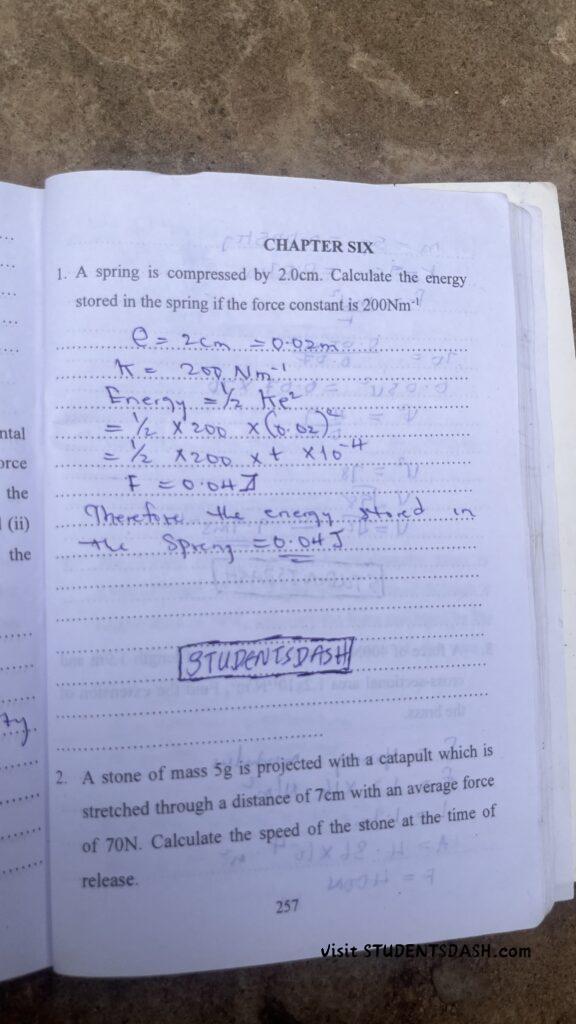 CHAPTER SIX
1. A spring is compressed by 2.0cm. Calculate the energy
stored in the spring if the force constant is 200Nm⁻¹
e = 2cm = 0.02m
K = 200 Nm⁻¹
Energy = ½ Ke²
= ½ × 200 × (0.02)²
= ½ × 200 × 4 × 10⁻⁴
E = 0.04J
Therefore the energy stored in
the Spreng = 0.04J
STUDENTSDASH
2. A stone of mass 5g is projected with a catapult which is
stretched through a distance of 7cm with an average force
of 70N. Calculate the speed of the stone at the time of
release.
257
visit STUDENTSDASH.com
ntal
orce
the
(ii)
the